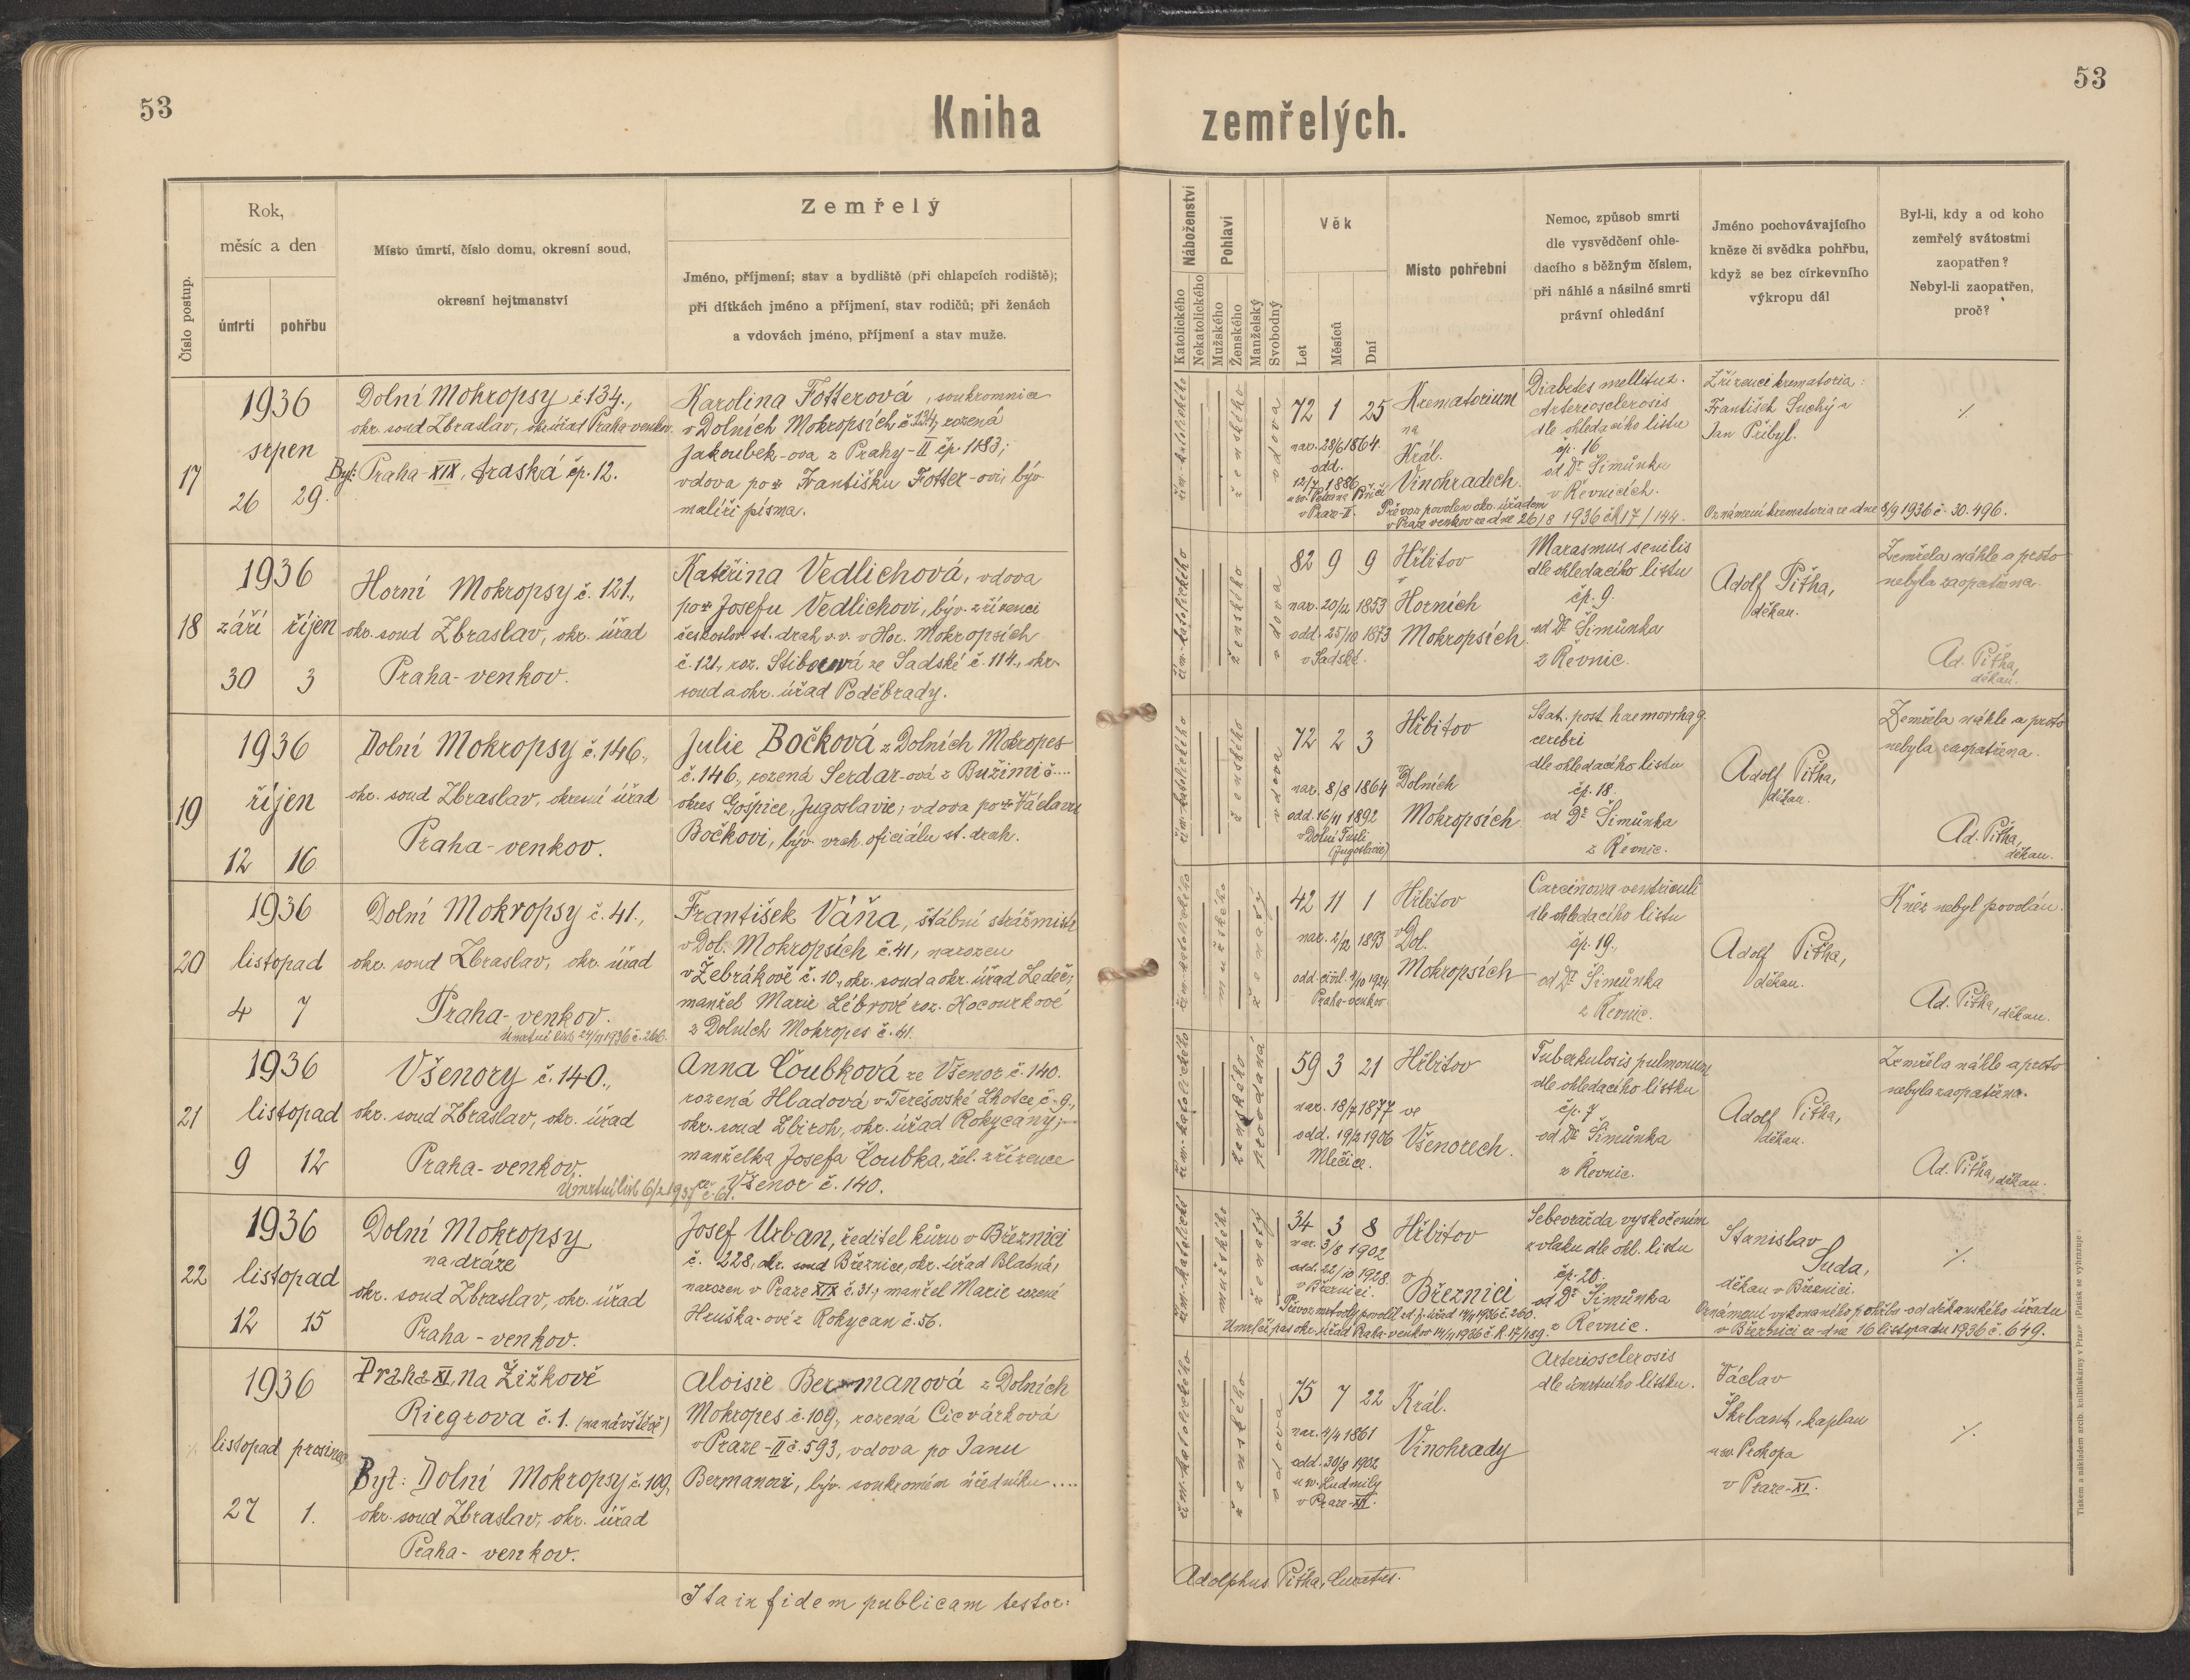 53
53
Kniha zemřelých.
Číslo postup.
Rok,
měsíc a den
úmrtí
pohřbu
Místo úmrtí, číslo domu, okresní soud,
okresní hejtmanství
Zemřelý
Jméno, příjmení; stav a bydliště (při chlapcích rodiště);
při dítkách jméno a příjmení, stav rodičů; při ženách
a vdovách jméno, příjmení a stav muže.
Náboženství
Katolického
Nekatolického
Pohlaví
Mužského
Ženského
Manželský
Svobodný
Věk
Let
Měsíců
Dní
Místo pohřební
Nemoc, způsob smrti
dle vysvědčení ohle-
dacího s běžným číslem,
při náhlé a násilné smrti
právní ohledání
Jméno pochovávajícího
kněze či svědka pohřbu,
když se bez církevního
výkropu dál
Byl-li, kdy a od koho
zemřelý svátostmi
zaopatřen?
Nebyl-li zaopatřen,
proč?
17
1936
srpen
26 29.
Dolní Mokropsy č. 134.,
okr. soud Zbraslav, okr. úřad Praha-venkov.
Byt: Praha-XIX, čp. 12.
Karolina Fotterová, soukromnice
v Dolních Mokropsích č. 134, rozená
Jakoubek-ova z Prahy-II čp. 1183;
vdova po † Františku Fotter-ovi, býv.
malíři písma.
řím.-katolického
ženského
vdova
72 1 25
nar. 28/6 1864.
odd.
12/7 1886
v Praze-II.
Krematorium
na
Král.
Vinohradech.
Převoz povolen okr. úřadem
v Praze venkov ze dne 26/8 1936 čk 17/144.
Diabetes mellitus.
Arteriosclerosis
dle ohledacího listu
čp. 16
od Dr Šimůnka
v Řevnicích.
Zřízenci krematoria:
František Suchý a
Jan Přibyl.
Oznámení krematoria ze dne 8/9 1936 č. 30.496.
⁒
18
1936
září říjen
30 3
Horní Mokropsy č. 121.,
okr. soud Zbraslav, okr. úřad
Praha-venkov.
Kateřina Vedlichová, vdova
po † Josefu Vedlichovi, býv. zřízenci
českoslov. st. drah v. v. v Hor. Mokropsích
č. 121., roz. Stiborová ze Sadské č. 114., okr.
soud a okr. úřad Poděbrady.
řím.-katolického
ženského
vdova
82 9 9
nar. 20/12 1853
odd. 25/10 1873
v Sadské.
Hřbitov
v
Horních
Mokropsích
Marasmus senilis
dle ohledacího listu
čp. 9.
od Dr Šimůnka
z Řevnic.
Adolf Piťha,
děkan.
Zemřela náhle a proto
nebyla zaopatřena.
Ad. Piťha,
děkan.
19
1936
říjen
12 16
Dolní Mokropsy č. 146.,
okr. soud Zbraslav, okresní úřad
Praha-venkov.
Julie Bočková z Dolních Mokropes
č. 146., rozená Serdar-ová z Bužimi č....
okres Gospice, Jugoslavie; vdova po † Václavu
Bočkovi, býv. vrch. oficiálu st. drah.
řím.-katolického
ženského
vdova
72 2 3
nar. 8/8 1864
odd. 16/11 1892
v Dolní Tusli
(Jugoslavie)
Hřbitov
v
Dolních
Mokropsích
Stat. post haemorrhag.
cerebri
dle ohledacího listu
čp. 18.
od Dr Šimůnka
z Řevnic.
Adolf Piťha,
děkan.
Zemřela náhle a proto
nebyla zaopatřena.
Ad. Piťha,
děkan.
20
1936
listopad
4 7
Dolní Mokropsy č. 41.,
okr. soud Zbraslav, okr. úřad
Praha-venkov.
Úmrtní list 24/11 1936 č. 266.
František Váňa, štábní strážmistr
v Dol. Mokropsích č. 41, narozen
v Žebrákově č. 10., okr. soud a okr. úřad Ledeč;
manžel Marie Lébrové roz. Kocourkové
z Dolních Mokropes č. 41.
řím.-katolického
mužského
ženatý
42 11 1
nar. 2/12 1893
odd. civil. 9/10 1924
Praha-venkov.
Hřbitov
v
Dol.
Mokropsích
Carcinoma ventriculi
dle ohledacího listu
čp. 19.,
od Dr Šimůnka
z Řevnic.
Adolf Piťha,
děkan.
Kněz nebyl povolán.
Ad. Piťha, děkan.
21
1936
listopad
9 12
Všenory č. 140.,
okr. soud Zbraslav, okr. úřad
Praha-venkov.
Úmrtní list 6/2 1937 č. 61.
Anna Čoubková ze Všenor č. 140.
rozená Hladová v Terešovské Lhotce č. 9.,
okr. soud Zbiroh, okr. úřad Rokycany;
manželka Josefa Čoubka, žel. zřízence
ze Všenor č. 140.
řím.-katolického
ženského
provdaná
59 3 21
nar. 18/7 1877
odd. 19/2 1906
Mlečice.
Hřbitov
ve
Všenorech.
Tuberkulosis pulmonum
dle ohledacího lístku
čp. 7
od Dr Šimůnka
z Řevnic.
Adolf Piťha,
děkan.
Zemřela náhle a proto
nebyla zaopatřena.
Ad. Piťha, děkan.
22
1936
listopad
12 15
Dolní Mokropsy
na dráze
okr. soud Zbraslav, okr. úřad
Praha-venkov.
Josef Urban, ředitel kůru v Březnici
č. 228, okr. soud Březnice, okr. úřad Blatná,
narozen v Praze XIX č. 31.; manžel Marie rozené
Hruška-ové z Rokycan č. 56.
řím.-katolické
mužského
ženatý
34 3 8
nar. 3/8 1902
odd. 22/10 1928.
v Březnici.
Hřbitov
v
Březnici
Převoz mrtvoly povolil 14/11 1936 č. 360.
okr. úřadu Praha-venkov 14/11 1936 č. R. 17/189.
Sebevražda vyskočením
z vlaku dle ohl. listu
čp. 20.
od Dr Šimůnka
z Řevnic.
Stanislav
Suda,
děkan v Březnici.
Oznámení vykonaného pohřbu od děkanského úřadu
v Březnici ze dne 16 listopadu 1936 č. 649.
⁒
1936
listopad prosinec
27 1.
⁒
Praha-XI, Na Žižkově
Riegrova č. 1. (na návštěvě)
Byt: Dolní Mokropsy č. 109,
okr. soud Zbraslav, okr. úřad
Praha-venkov.
Aloisie Bermanová z Dolních
Mokropes č. 109., rozená Cicvárková
v Praze-II č. 593, vdova po Janu
Bermanovi, býv. soukromém úředníku....
řím.-katolického
ženského
vdova
75 7 22
nar. 4/4 1861
odd. 30/8 1902
u sv. Ludmily
v Praze-XII.
Král.
Vinohrady
Arteriosclerosis
dle úmrtního lístku.
Václav
Škrlant, kaplan
u sv. Prokopa
v Praze-XI.
⁒
Ita in fidem publicam testor:
Adolphus Piťha, curatus.
Tiskem a nákladem arcib. knihtiskárny v Praze. (Patisk se vyhrazuje.)